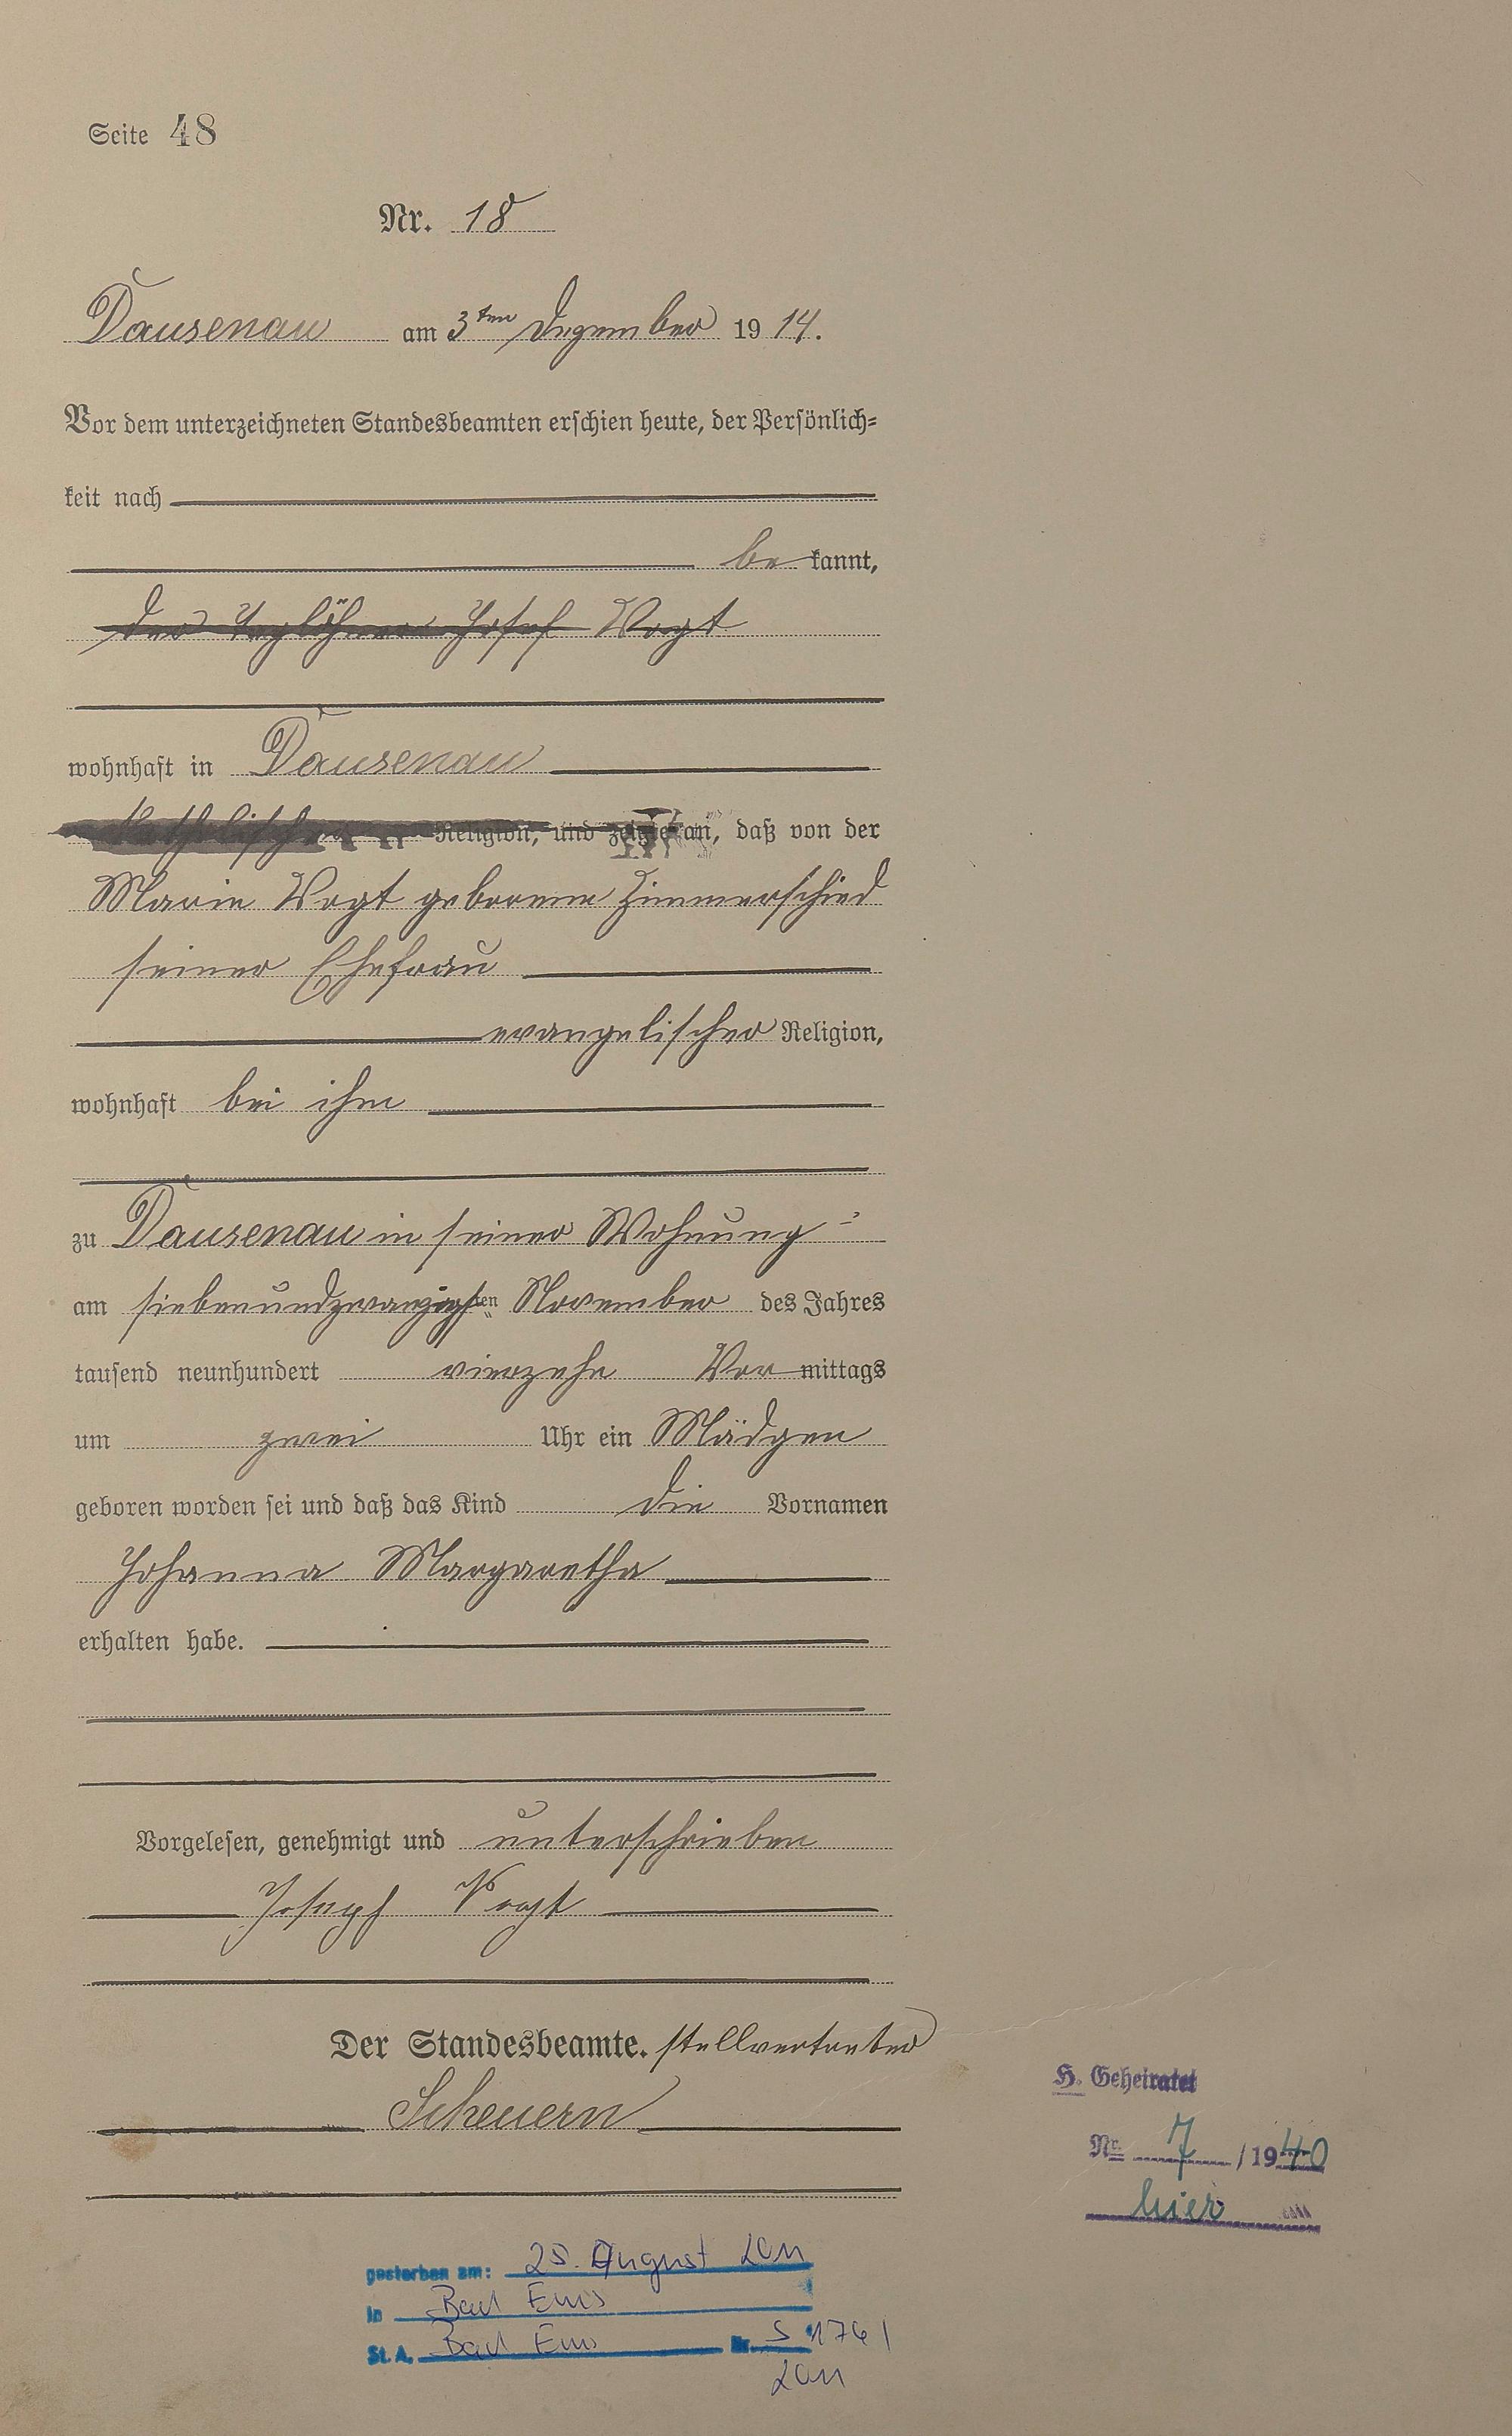 Seite 48
Nr. 18
Dausenau am 3ten Dezember 1914.
Vor dem unterzeichneten Standesbeamten erschien heute, der Persönlich=
keit nach
be kannt,
der Taglöhner Josef Vogt
wohnhaft in Dausenau
katholischer Religion, und zeigte an, daß von der
Marie Vogt geborene Zimmerschied
seiner Ehefrau
evangelischer Religion,
wohnhaft bei ihm
zu Dausenau in seiner Wohnung
am siebenundzwanzigsten November des Jahres
tausend neunhundert vierzehn Vor mittags
um zwei Uhr ein Mädgen
geboren worden sei und daß das Kind die Vornamen
Johanna Margaretha
erhalten habe.
Vorgelesen, genehmigt und unterschrieben
Joseph Vogt
Der Standesbeamte. stellvertreter
Scheuern
H. Geheiratet
Nr. 7 / 1940
hier
gestorben am: 25. August 2011
in Bad Ems
St. A. Bad Ems Nr. S 176 /
2011